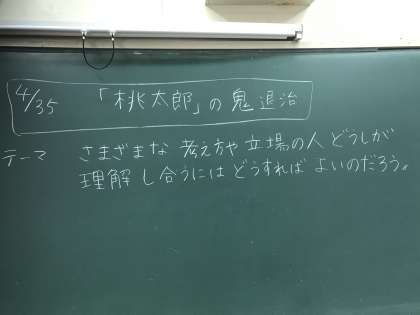 4/35 「桃太郎」の鬼退治
テーマ さまざまな考え方や立場の人どうしが
理解し合うにはどうすればよいのだろう。